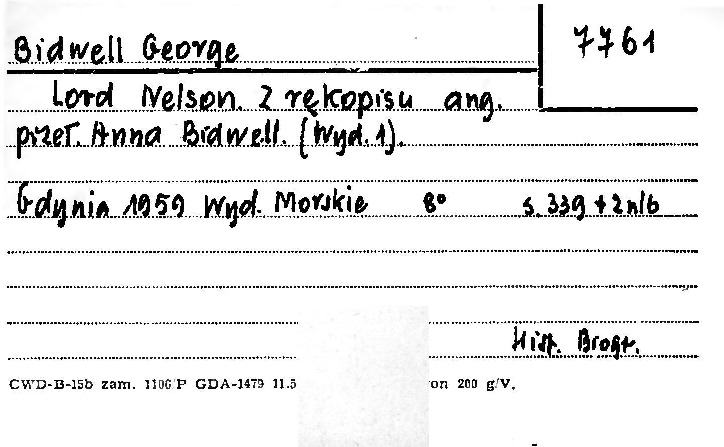 Bidwell George
7761
Lord Nelson. Z rękopisu ang.
przeł. Anna Bidwell. (Wyd. 1).
Gdynia 1959 Wyd. Morskie 8° s. 339 + 2 nlb
Hist. Biogr.
CWD-B-15b zam. 1106/P GDA-1479 11.5 on 200 g/V.